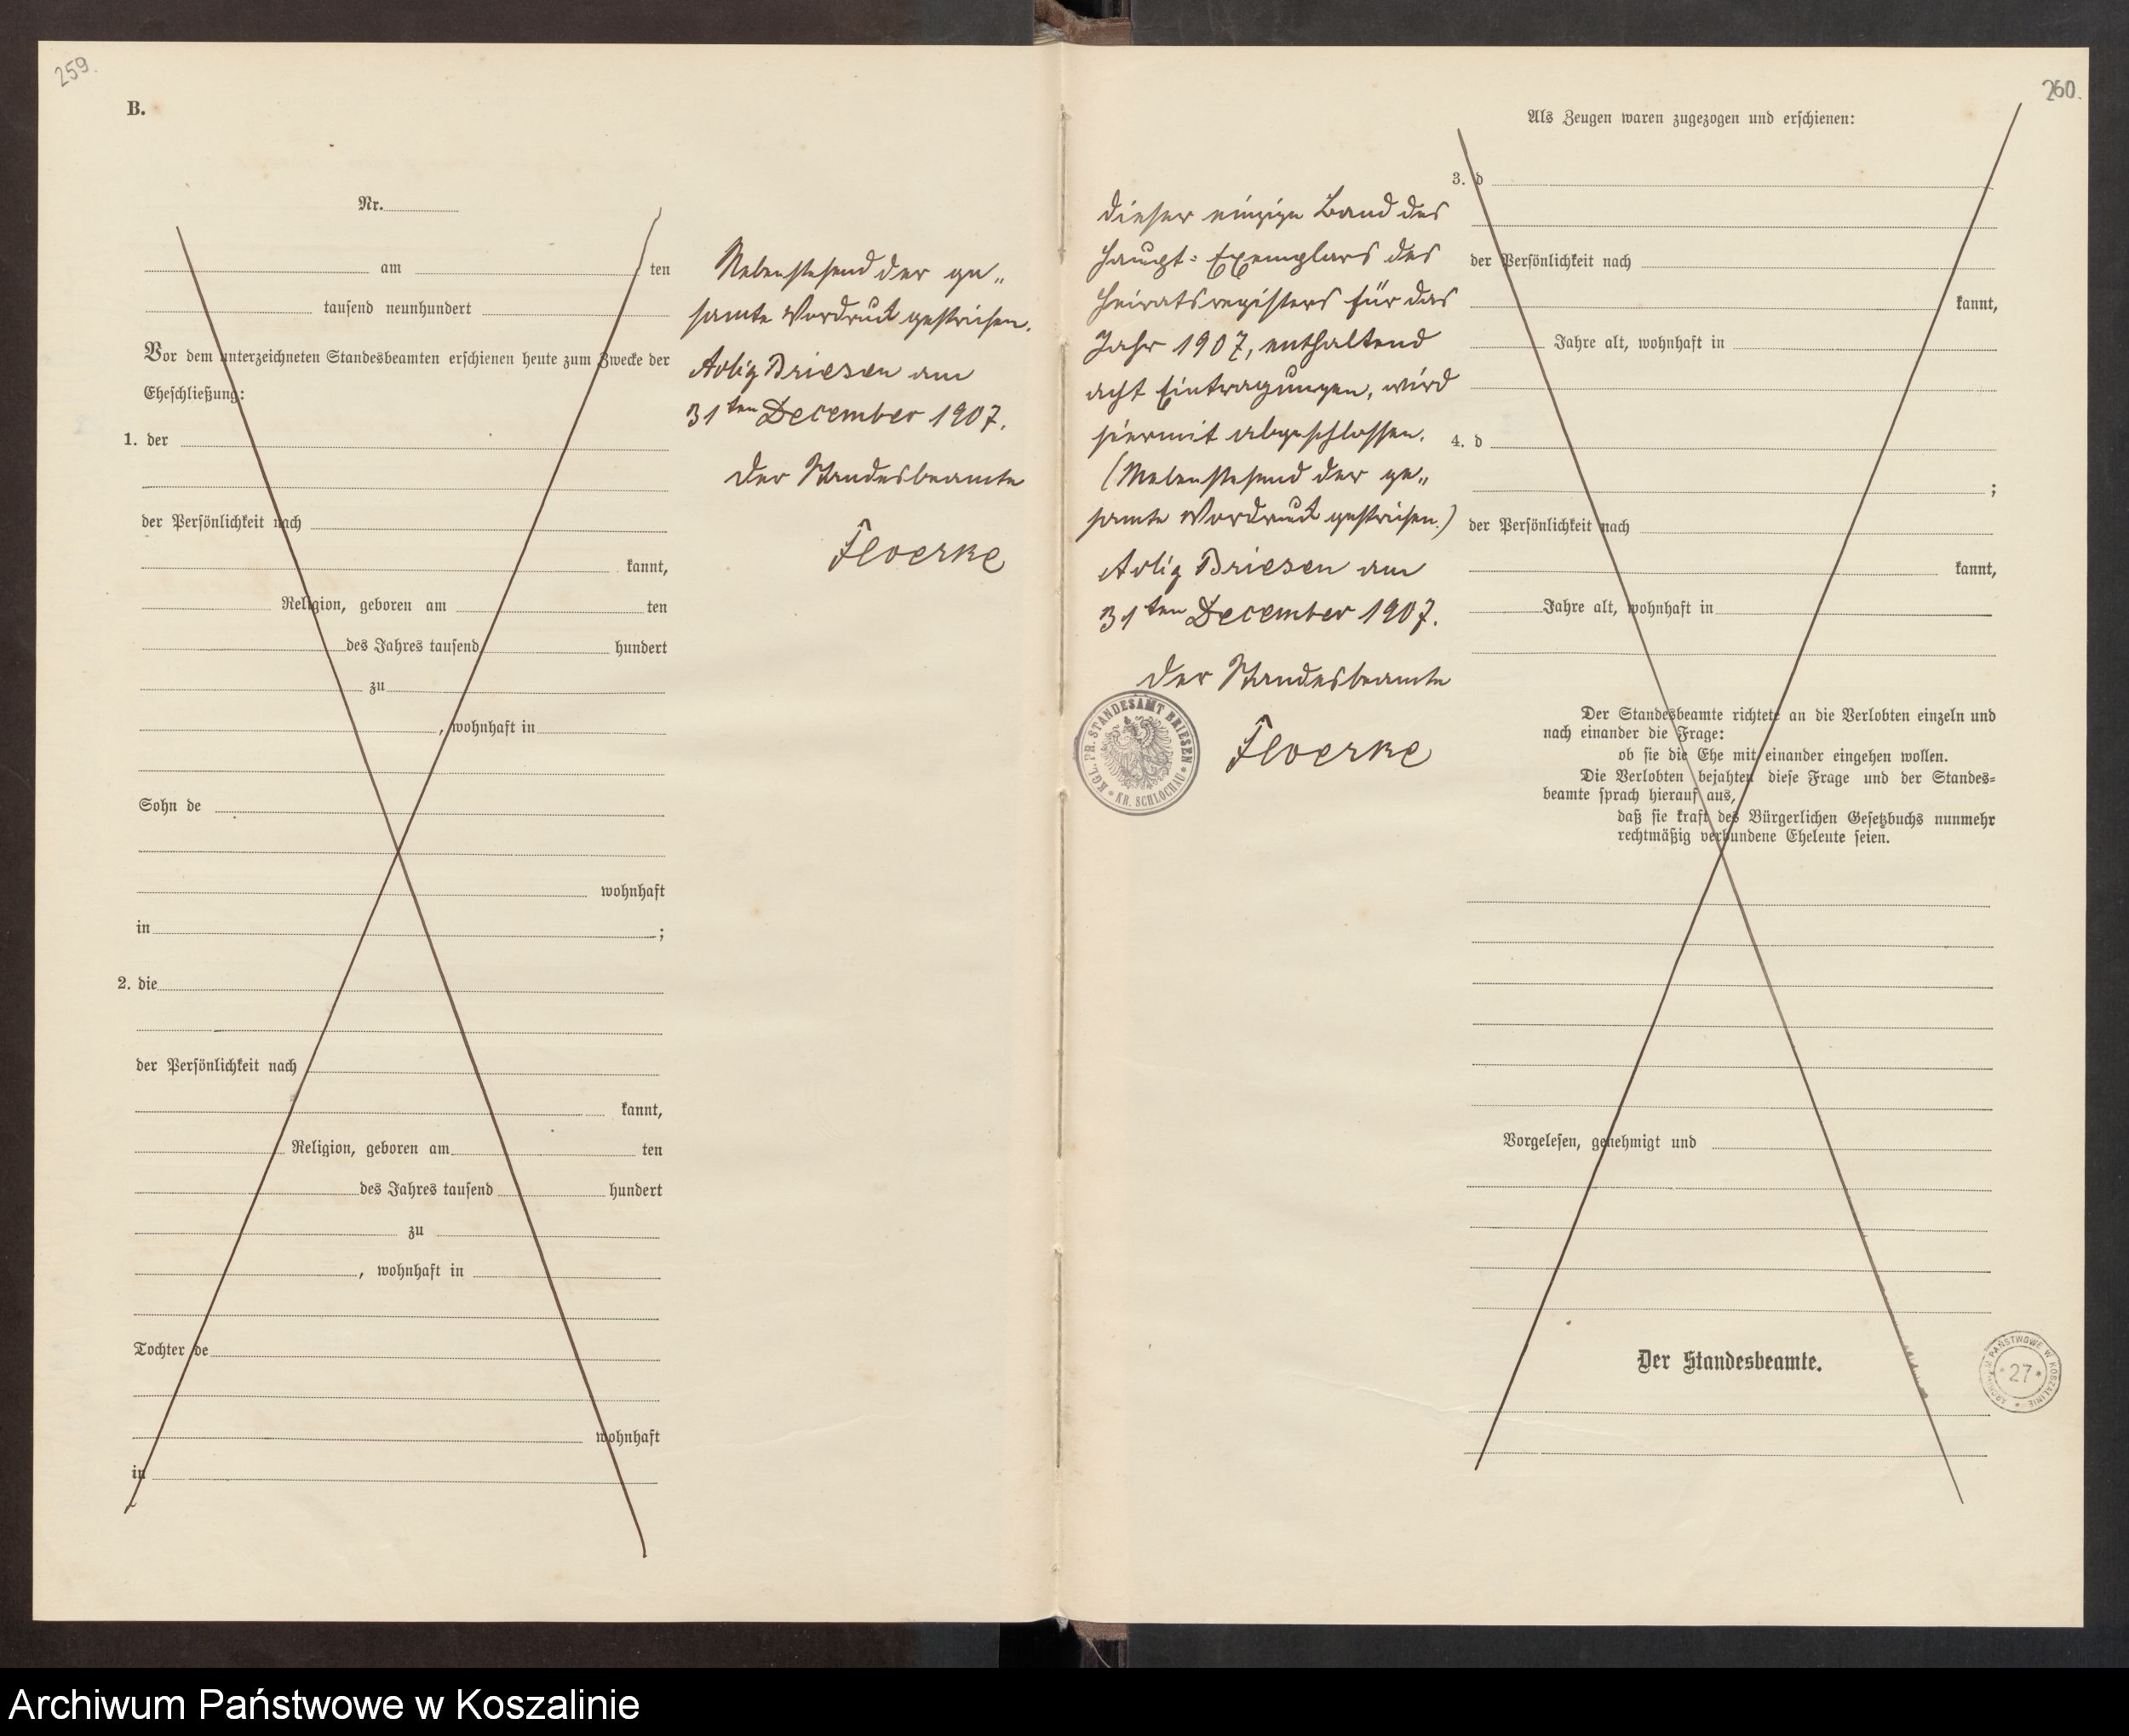 259.
B.
Nr.
am ten
tausend neunhundert
Vor dem unterzeichneten Standesbeamten erschienen heute zum Zwecke der
Eheschließung:
1. der
der Persönlichkeit nach
kannt,
Religion, geboren am ten
des Jahres tausend hundert
zu
, wohnhaft in
Sohn de
wohnhaft
in ;
2. die
der Persönlichkeit nach
kannt,
Religion, geboren am ten
des Jahres tausend hundert
zu
, wohnhaft in
Tochter de
wohnhaft
in
Nebenstehend der ge„
samte Vordruck gestrichen.
Adlig Briesen am
31ten December 1907.
Der Standesbeamte
Floerke
260.
Dieser einzige Band des
Haupt=Exemplars des
Heiratsregisters für das
Jahr 1907, enthaltend
acht Eintragungen, wird
hiermit abgeschlossen.
(Nebenstehend der ge„
samte Vordruck gestrichen.)
Adlig Briesen am
31ten December 1907.
Der Standesbeamte
Floerke
KGL. PR. STANDESAMT BRIESEN
* KR. SCHLOCHAU *
Als Zeugen waren zugezogen und erschienen:
3. d
der Persönlichkeit nach
kannt,
Jahre alt, wohnhaft in
4. d
;
der Persönlichkeit nach
kannt,
Jahre alt, wohnhaft in
Der Standesbeamte richtete an die Verlobten einzeln und
nach einander die Frage:
ob sie die Ehe mit einander eingehen wollen.
Die Verlobten bejahten diese Frage und der Standes=
beamte sprach hierauf aus,
daß sie kraft des Bürgerlichen Gesetzbuchs nunmehr
rechtmäßig verbundene Eheleute seien.
Vorgelesen, genehmigt und
Der Standesbeamte.
ARCHIWUM PAŃSTWOWE W KOSZALINIE *
* 27 *
Archiwum Państwowe w Koszalinie